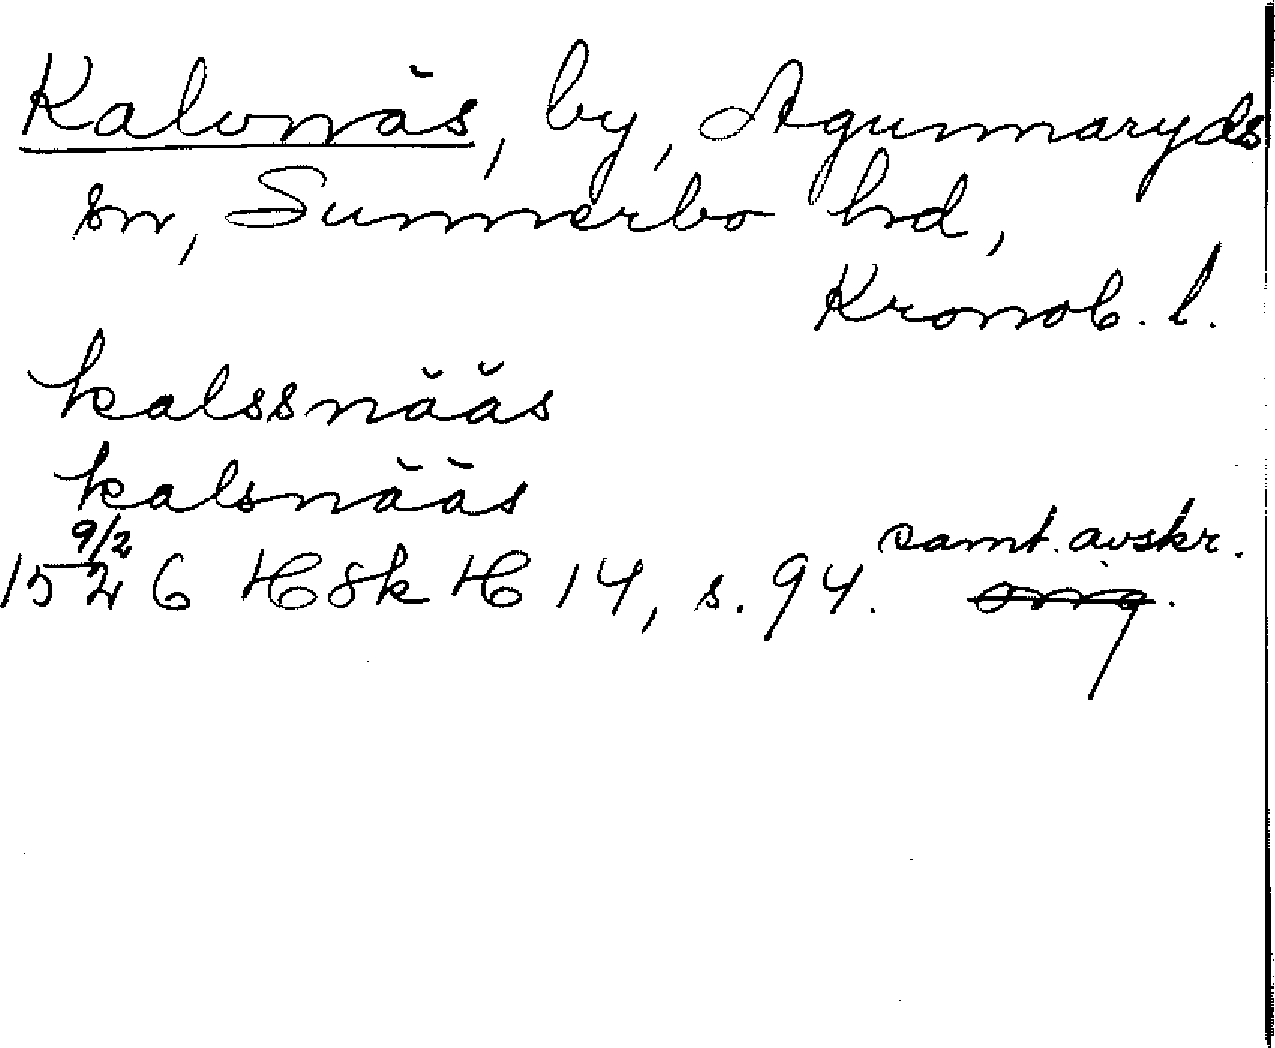 Kalvnäs, by, Agunnaryds
sn, Sunnerbo hd,
Kronob. l.
kalssnääs
kalsnääs
15 9/2 26 HSk H 14, s. 94. samt. avskr.
orig.